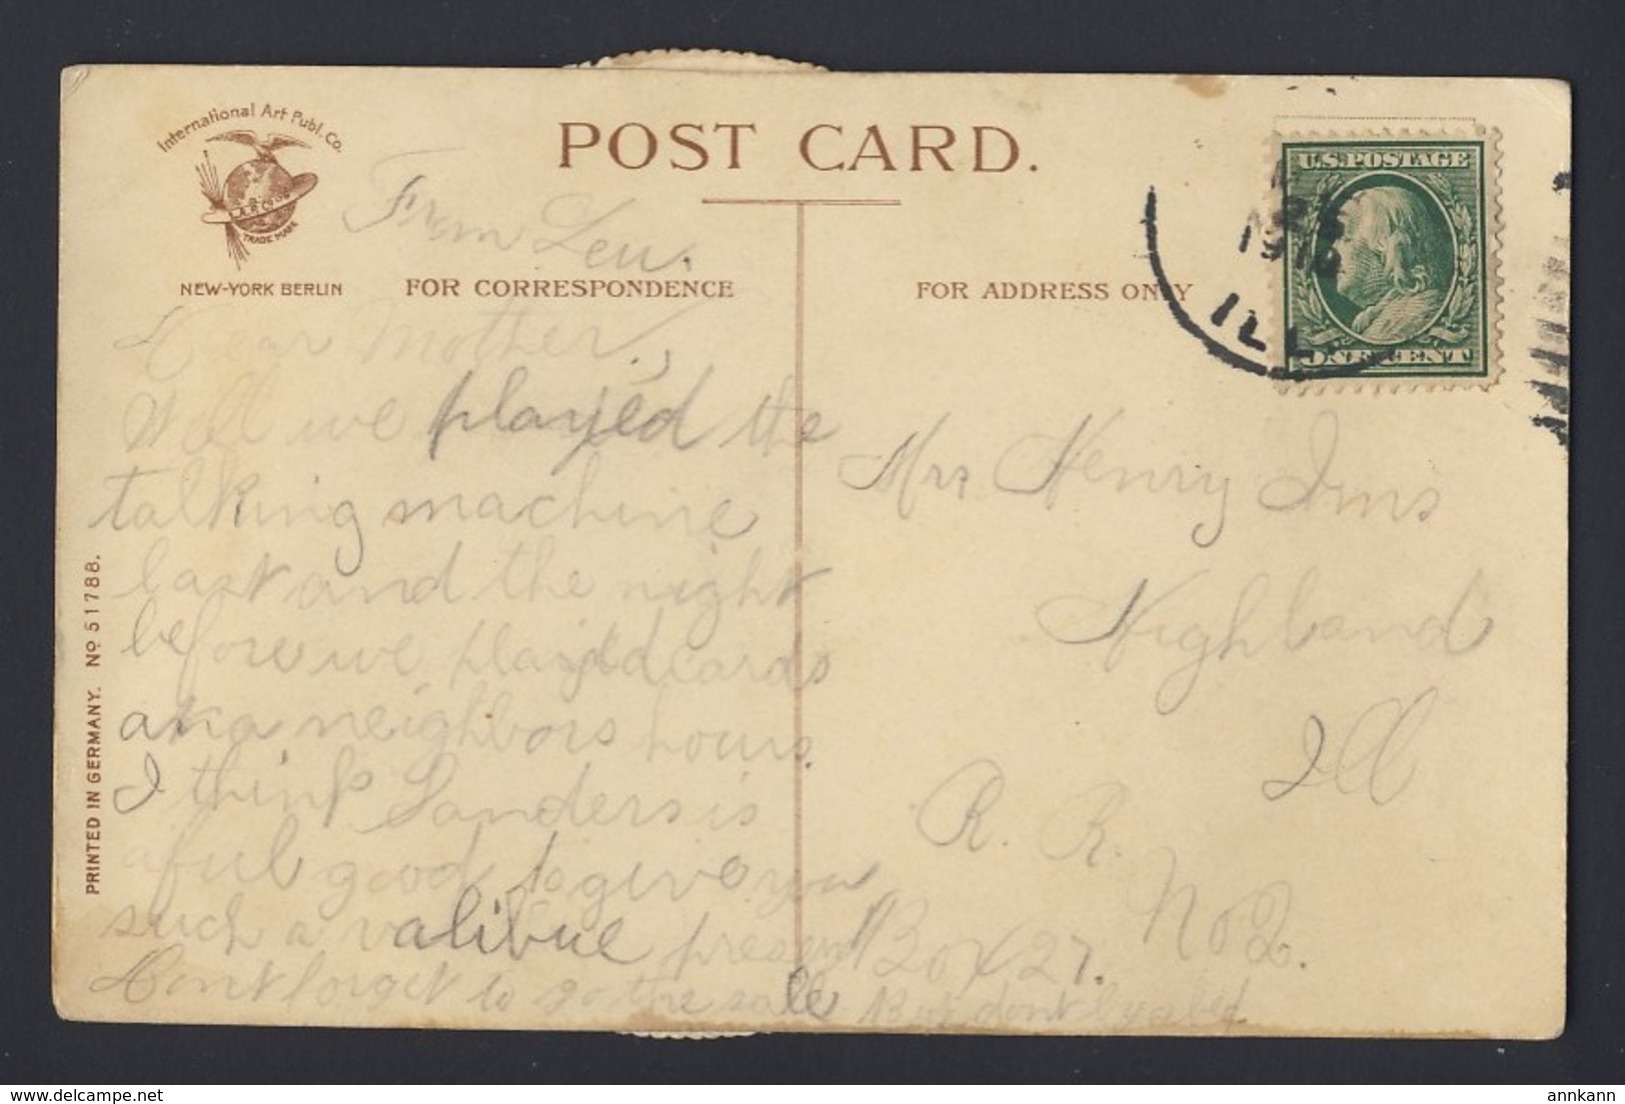 International Art Publ. Co.
TRADE MARK
NEW-YORK BERLIN
POST CARD.
From Leu.
FOR CORRESPONDENCE
FOR ADDRESS ONLY
U.S. POSTAGE
ONE CENT
1910
ILL.
Dear Mother,
Well we played the
talking machine
last and the night
before we playedd cards
neighbors hours.
I think Sanders is
aful good to give you
such a valibue present
Dont forget to go the sale. But dont by a bed
Mrs Henry Ims
Highland
Ill
R. R. No 2.
Box 27.
PRINTED IN GERMANY. No 51788.
annkann